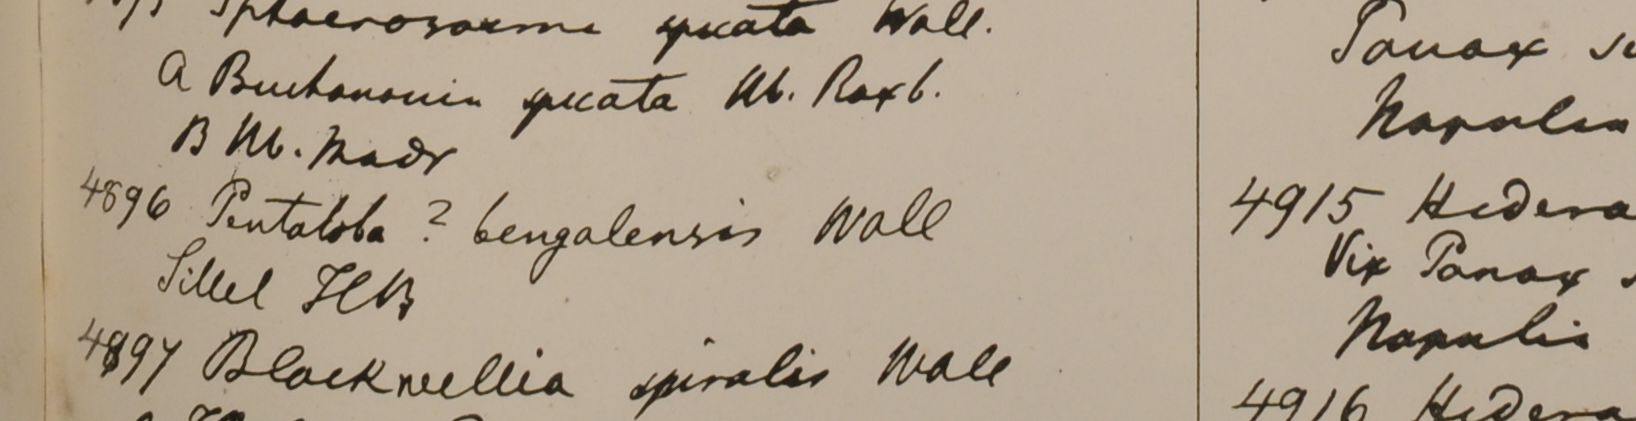 Sphaerosacme spicata Wall.
A Buchanania spicata Hb. Roxb.
B Hb. Madr
4896 Pentaloba ? bengalensis Wall
Sillet HCB
4897 Blackwellia spiralis Wall
Panax
Napalia
4915 Hedera
Vix Panax
Napalia
4916 Hedera